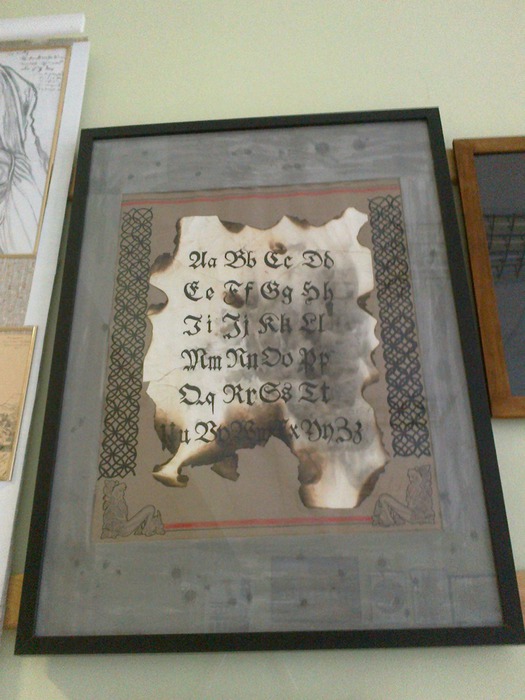 Aa Bb Cc Dd
Ee Ff Gg Hh
Ii Jj Kk Ll
Mm Nn Oo Pp
Qq Rr Ss Tt
Uu Vv Ww Xx Yy Zz